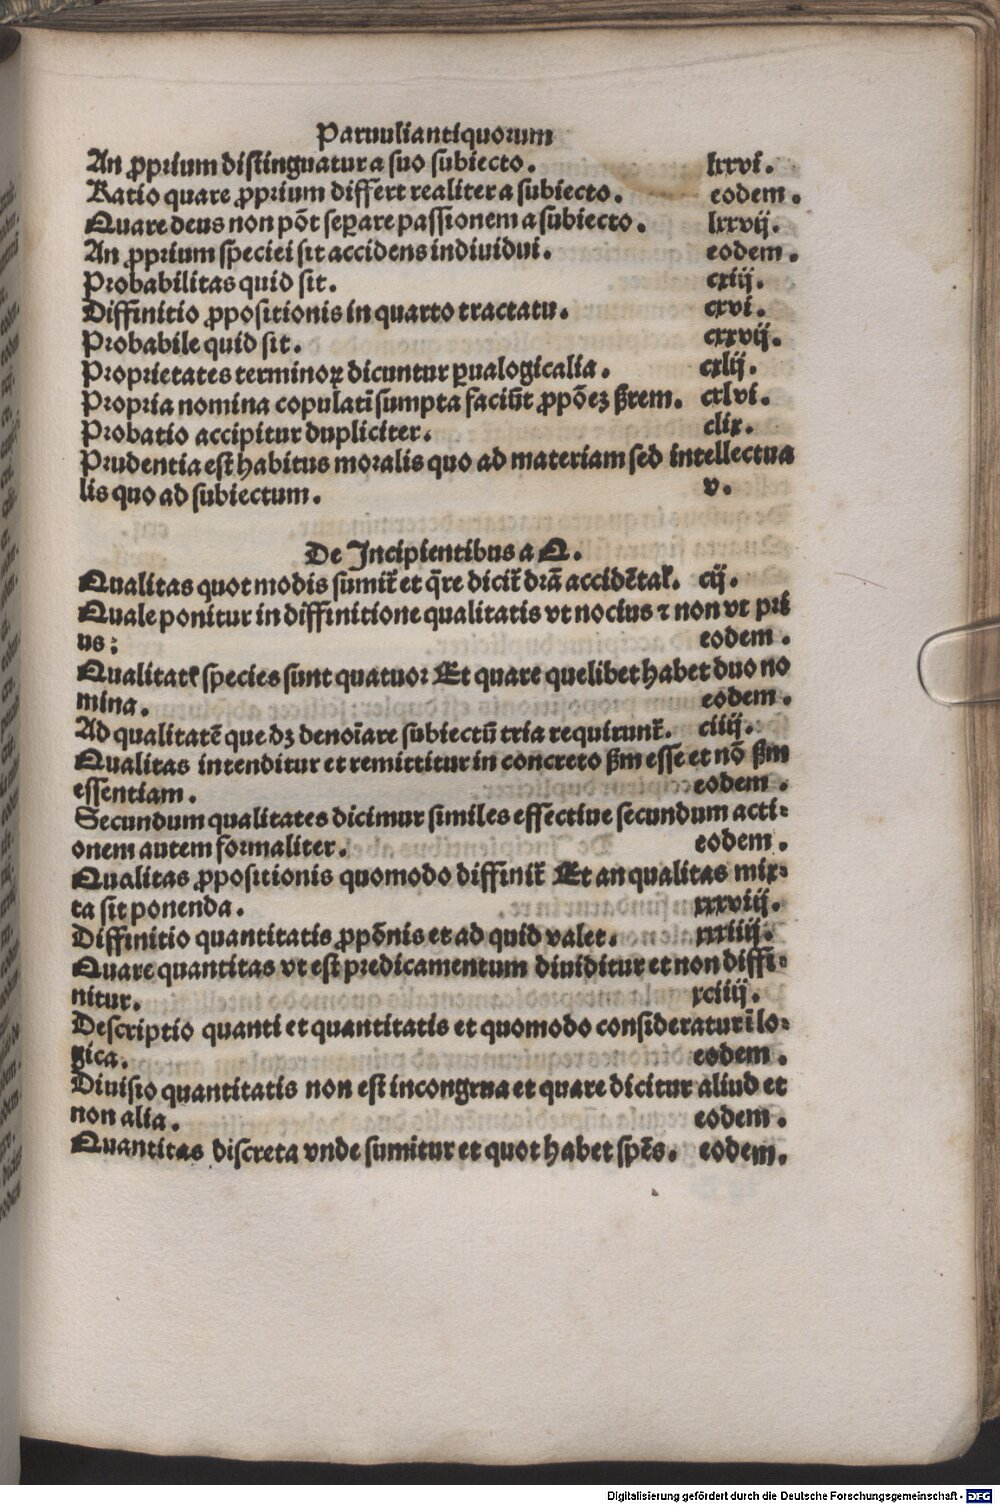 Paruuli antiquorum
An ꝓprium distinguatur a suo subiecto. lxxvi.
Ratio quare ꝓprium differt realiter a subiecto. eodem.
Quare deus non põt seꝑare passionem a subiecto. lxxvij.
An ꝓprium speciei sit accidens indiuidui. eodem.
Probabilitas quid sit. cxiij.
Diffinitio ꝓpositionis in quarto tractatu. cxvi.
Probabile quid sit. cxxvij.
Proprietates terminoꝝ dicuntur ꝑua logicalia. cxlij.
Propria nomina copulatĩ sumpta faciũt ꝓpõeꝫ ꝑtrem. cxlvi.
Probatio accipitur dupliciter. clix.
Prudentia est habitus moralis quo ad materiam sed intellectua
lis quo ad subiectum. v.
De Incipientibus a Q.
Qualitas quot modis sumit̃ et q̃re dicit̃ drã accidẽtal̃. cij.
Quale ponitur in diffinitione qualitatis vt nocius ⁊ non vt pri
us: eodem.
Qualitatꝭ species sunt quatuor Et quare quelibet habet duo no
mina. eodem.
Ad qualitatẽ que dꝫ denoĩare subiectũ tria requirunt̃. ciiij.
Qualitas intenditur et remittitur in concreto ẜm esse et nõ ẜm
essentiam. eodem.
Secundum qualitates dicimur similes effectiue secundum acti-
onem autem formaliter. eodem.
Qualitas ꝓpositionis quomodo diffinit̃ Et an qualitas mix-
ta sit ponenda. xxxviij.
Diffinitio quantitatis ꝓpõnis et ad quid valet. xxxiiij.
Quare quantitas vt est predicamentum diuiditur et non diffi-
nitur. xciiij.
Descriptio quanti et quantitatis et quomodo consideratur ĩ lo-
gica. eodem.
Diuisio quantitatis non est incongrua et quare dicitur aliud et
non alia. eodem.
Quantitas discreta vnde sumitur et quot habet spẽs. eodem.
Digitalisierung gefördert durch die Deutsche Forschungsgemeinschaft - DFG